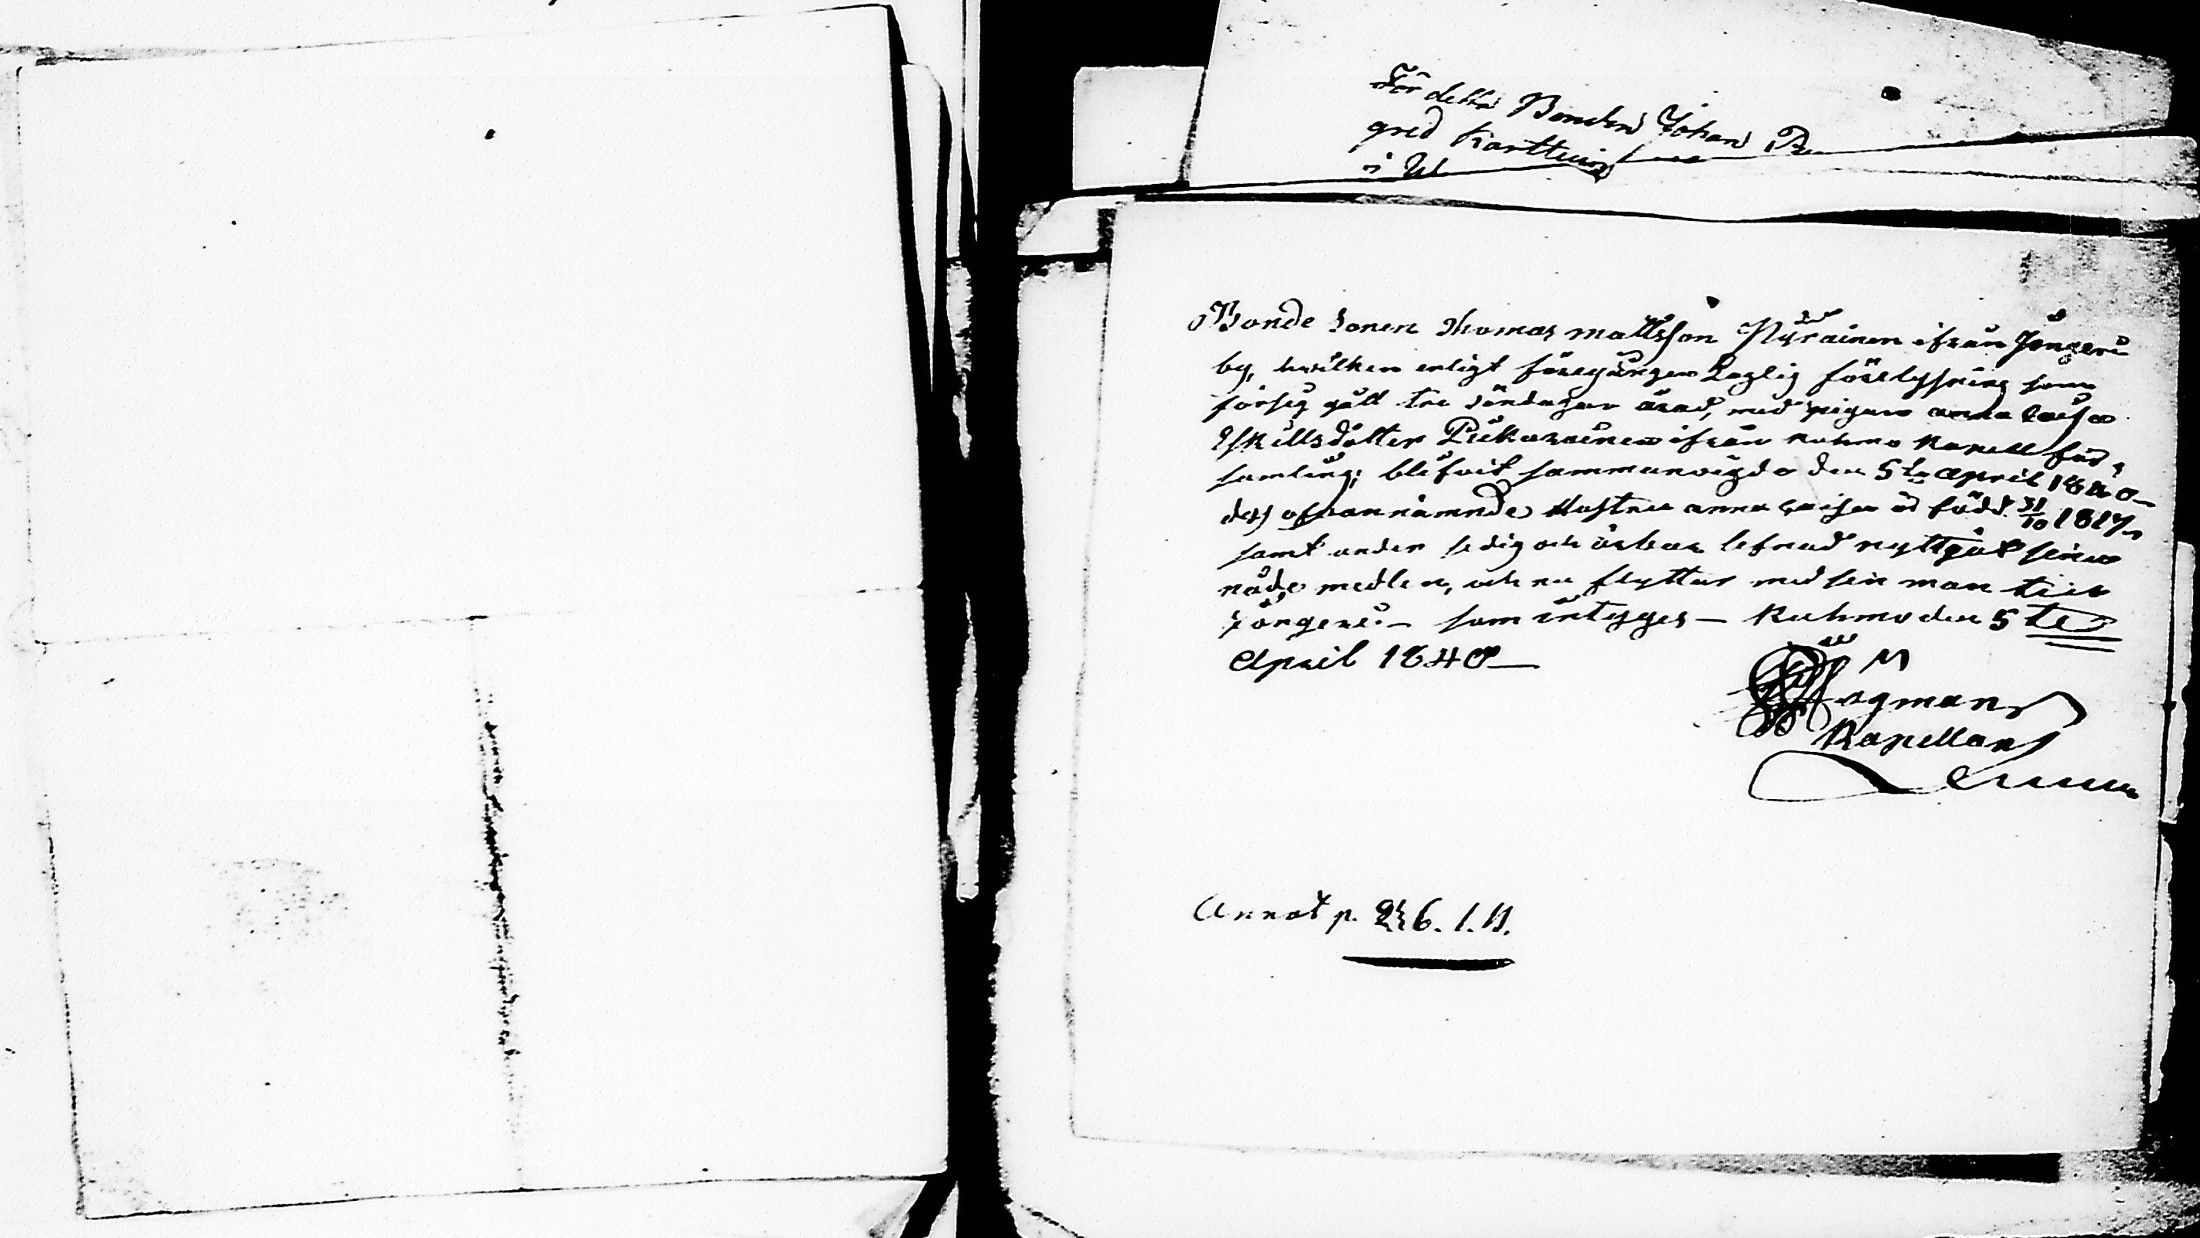 För detta Bonden Johan
gred Karttuin
i
Bonde sonen Thomas Mattsson Nÿrainen ifrån Jongerü
by, hvilken enligt föregången Laglig förelysning som
försig gått tre söndagar årad, med pigan Anna Caisa
Eskillsdotter Piekarainen ifrån Kuhmo Kapell för-
samling; blifvit sammanvigda den 5te april 1840
des ofvannämnde Hustru anna Caisa är född 31/10 1817
samt under sedig och ärbar lefnad nyttjat sina
nåde medlen, och nu flyttar med sin man till
Jongerü. – som intygges – Kuhmo den 5te
April 1840
M
Hogman
Kapellan
Annot p. 236. 1. H.